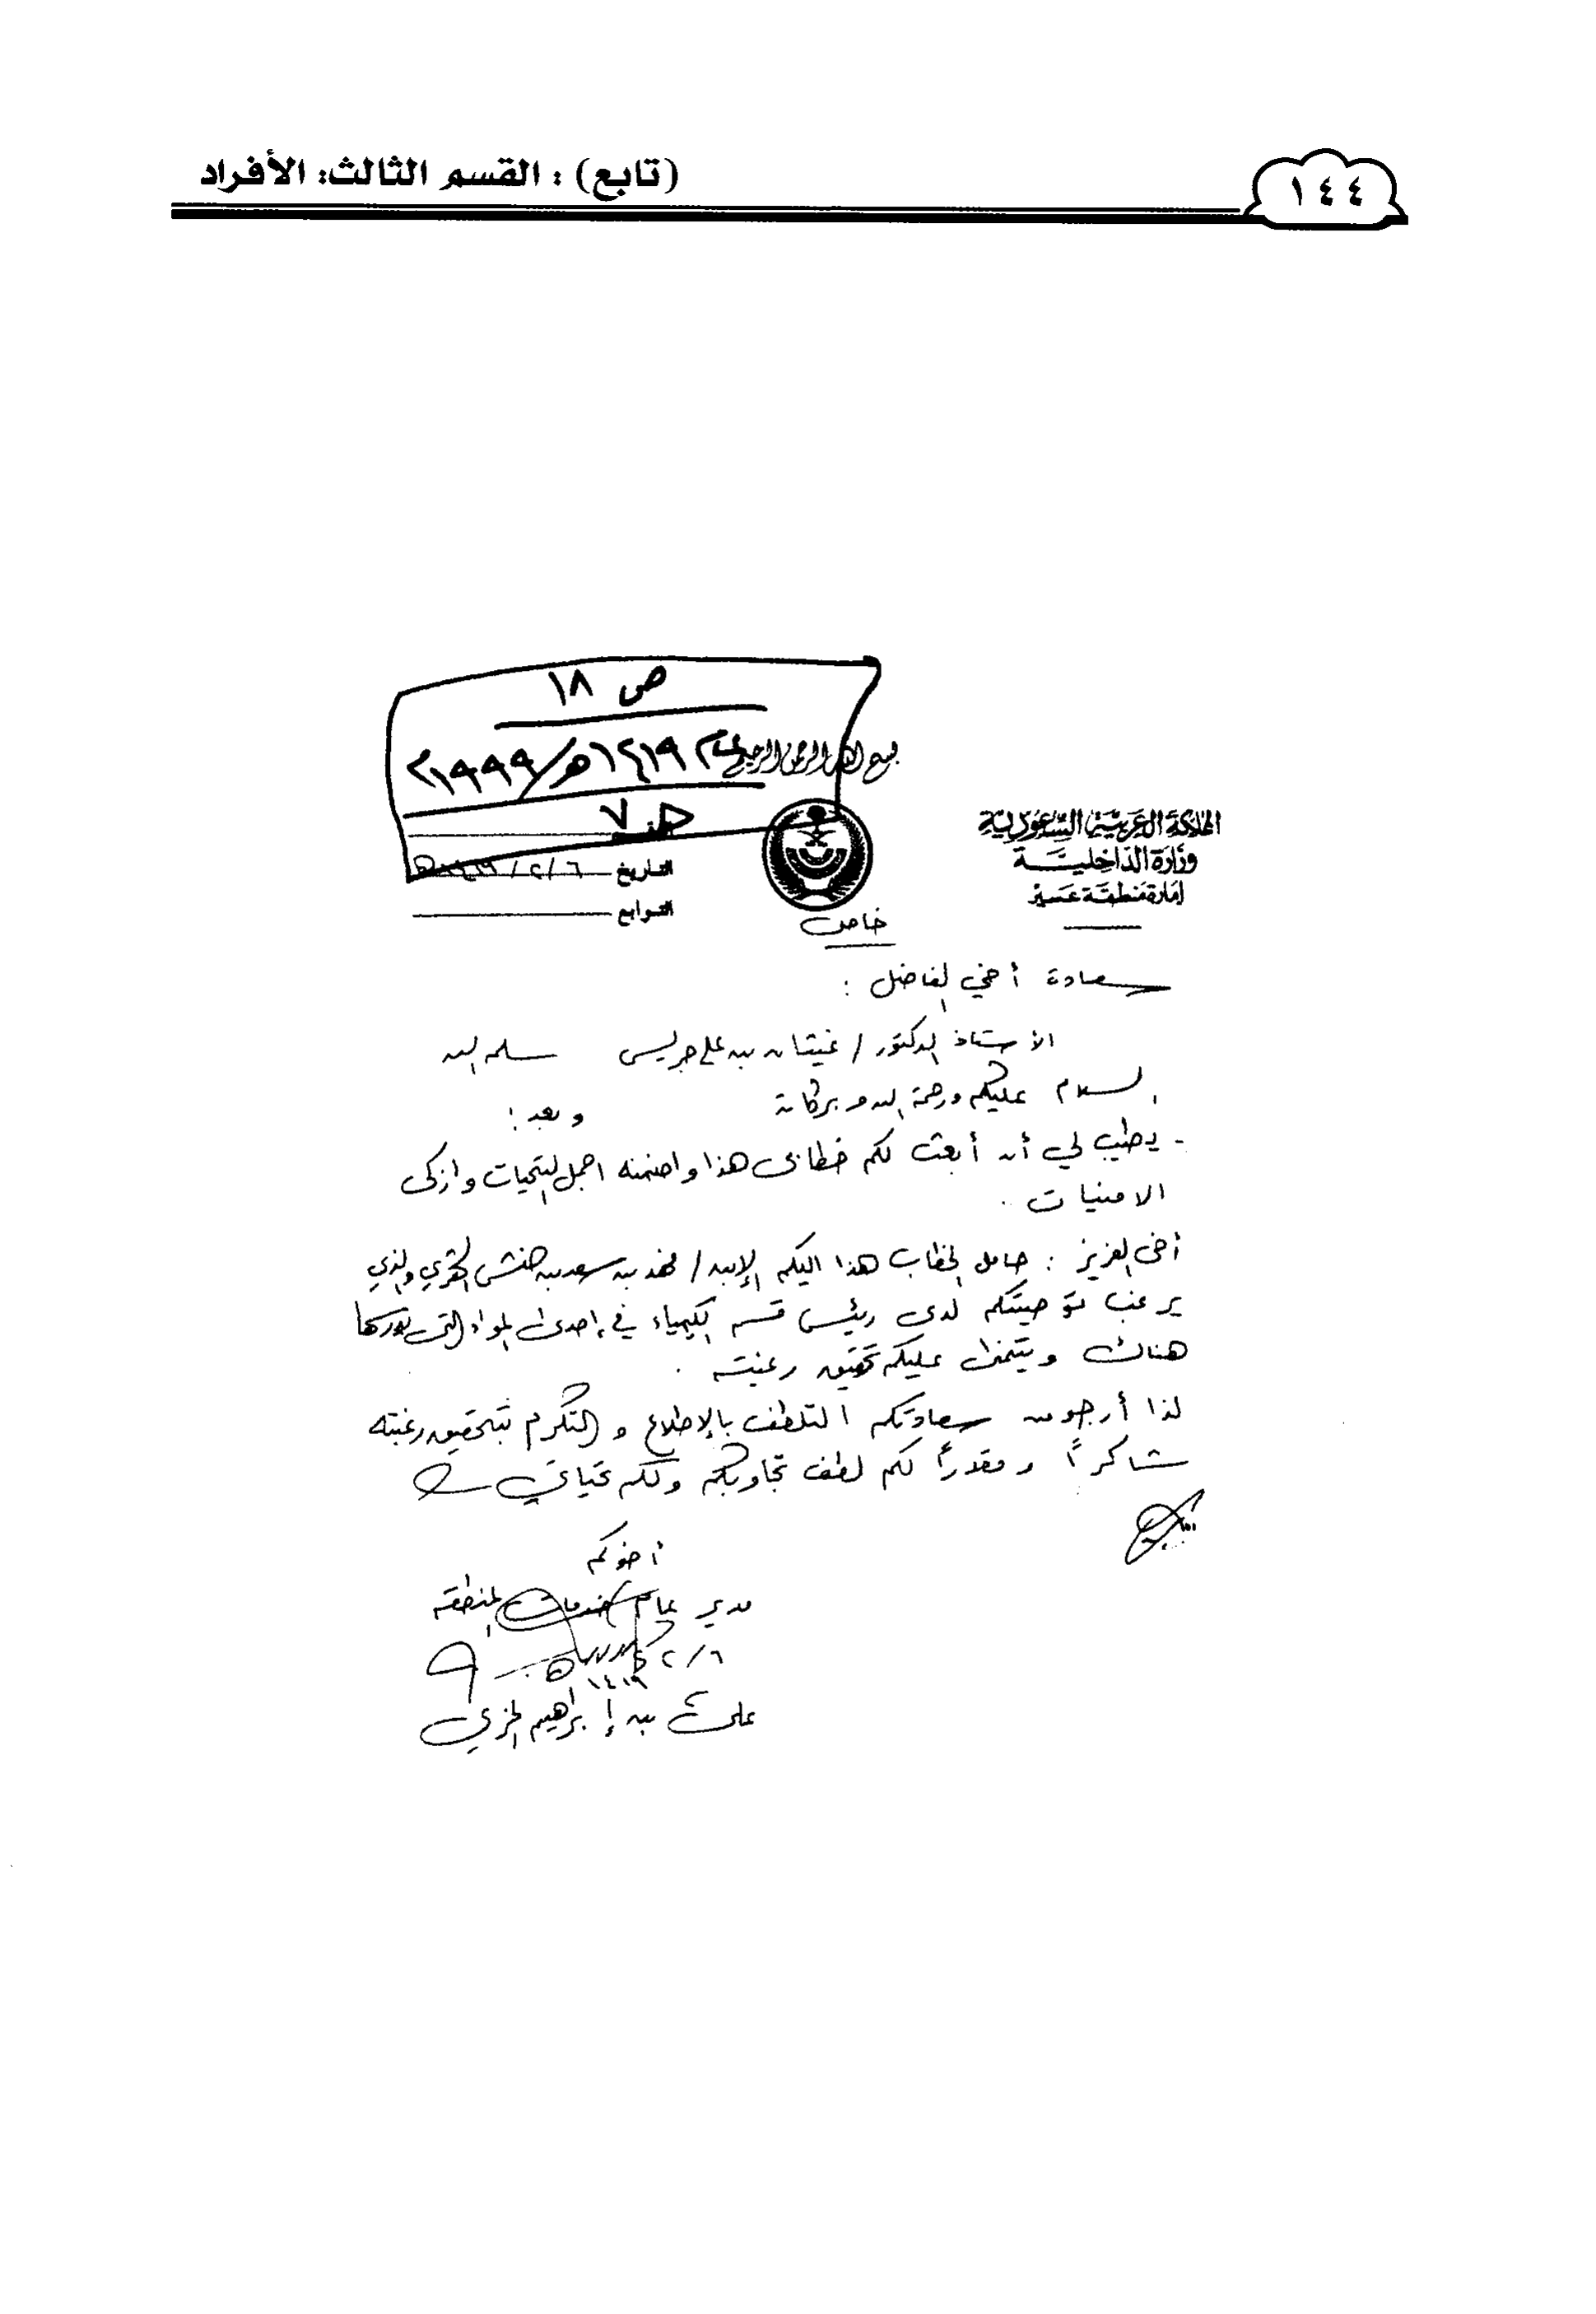 ١٤٤
(تابع) : القسم الثالث: الأفراد
ص ١٨
١٤١٩هـ/١٩٩٩م
بسم الله الرحمن الرحيم
المملكة العربية السعودية
وزارة الداخلية
إمارة منطقة عسير
التاريخ ٦/٢/١٤١٩هـ
التوابع
خاص
سعادة أخي الفاضل :
الأستاذ الدكتور / غيثان بن علي جريس سلمه الله
السلام عليكم ورحمة الله وبركاته وبعد :
- يطيب لي أن أبعث لكم خطابي هذا واضمنه اجمل التحيات وازكى
الامنيات .
أخي العزيز : حامل الخطاب هذا اليكم الإبن / فهد بن سعد بن حنش الشهري والذي
يرغب توصيتكم لدى رئيس قسم الكيمياء في إحدى المواد التي يدرسها
هناك ويتمنى عليكم تحقيق رغبته .
لذا أرجو من سعادتكم التلطف بالإطلاع والتكرم بتحقيق رغبته
شاكراً ومقدراً لكم لطف تجاوبكم ولكم تحياتي
أخوكم
مدير عام خدمات المنطقة
٦/٢/١٤١٩هـ
علي بن إبراهيم